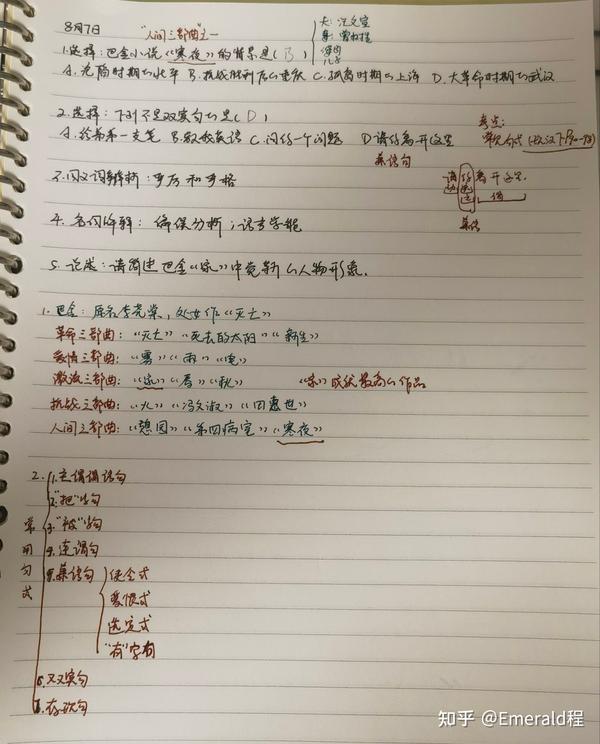 8月7日
"人间三部曲"之一
夫：汪文宣
妻：曾树生
1.选择：巴金小说《寒夜》的背景是(B)
儿子
A.沦陷时期的北平 B.抗战胜利后的重庆 C.孤岛时期的上海 D.大革命时期的武汉
2.选择：下列不是双宾句的是(D)
考点：
A.给弟弟一支笔 B.教我英语 C.问你一个问题 D.请你离开这里
常见句式(现汉下P90-98)
兼语句
请你离开这里
兼语
3.同义词辨析：严厉和严格
4.名词解释：偏误分析；语言学能
5.论述：请简述巴金《家》中觉新的人物形象.
1.巴金：原名李尧棠，处女作《灭亡》
革命三部曲：《灭亡》《死去的太阳》《新生》
爱情三部曲：《雾》《雨》《电》
激流三部曲：《家》《春》《秋》 《家》成就最高的作品
抗战三部曲：《火》《冯文淑》《田惠世》
人间三部曲：《憩园》《第四病室》《寒夜》
2.
常用句式
1.主谓谓语句
2."把"字句
3."被"字句
4.连谓句
5.兼语句
使令式
爱恨式
选定式
"有"字句
6.双宾句
7.存现句
知乎 @Emerald程